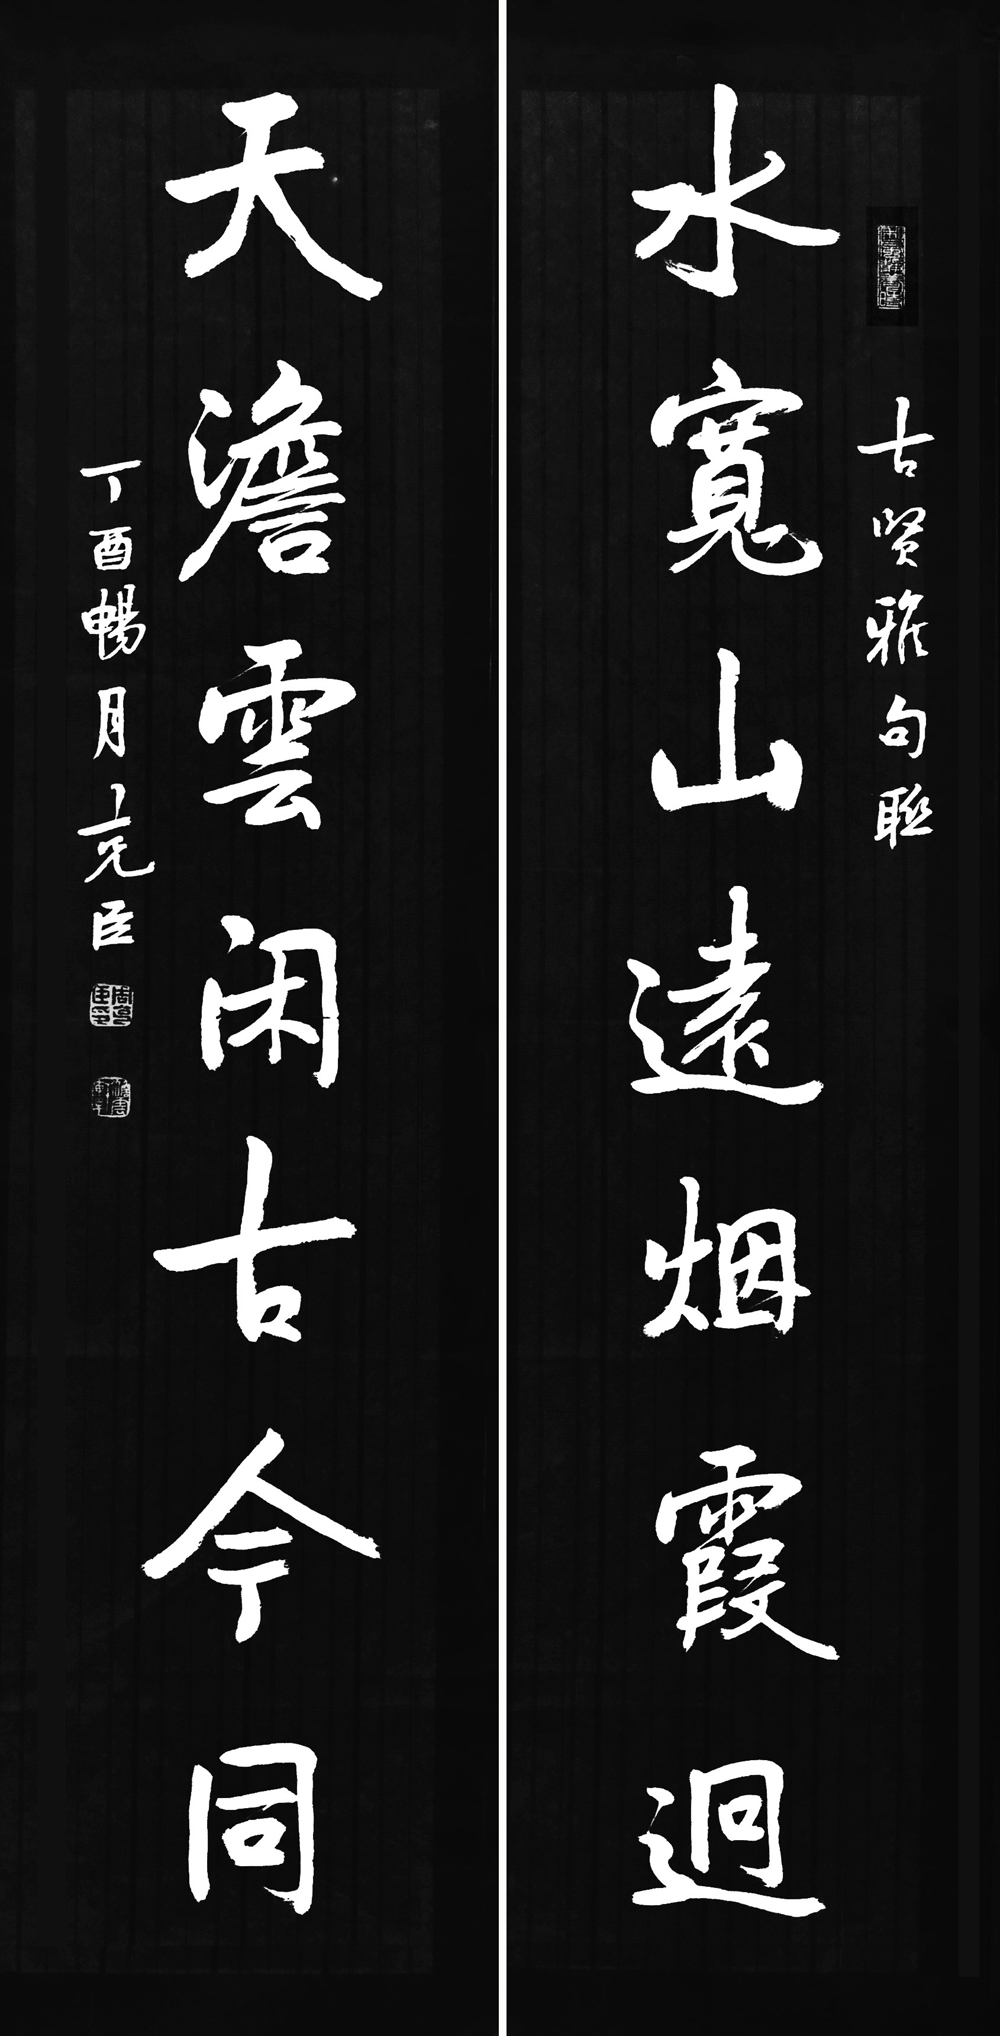 古賢雅句聯
水寬山遠烟霞迥
天澹雲闲古今同
丁酉暢月上元臣